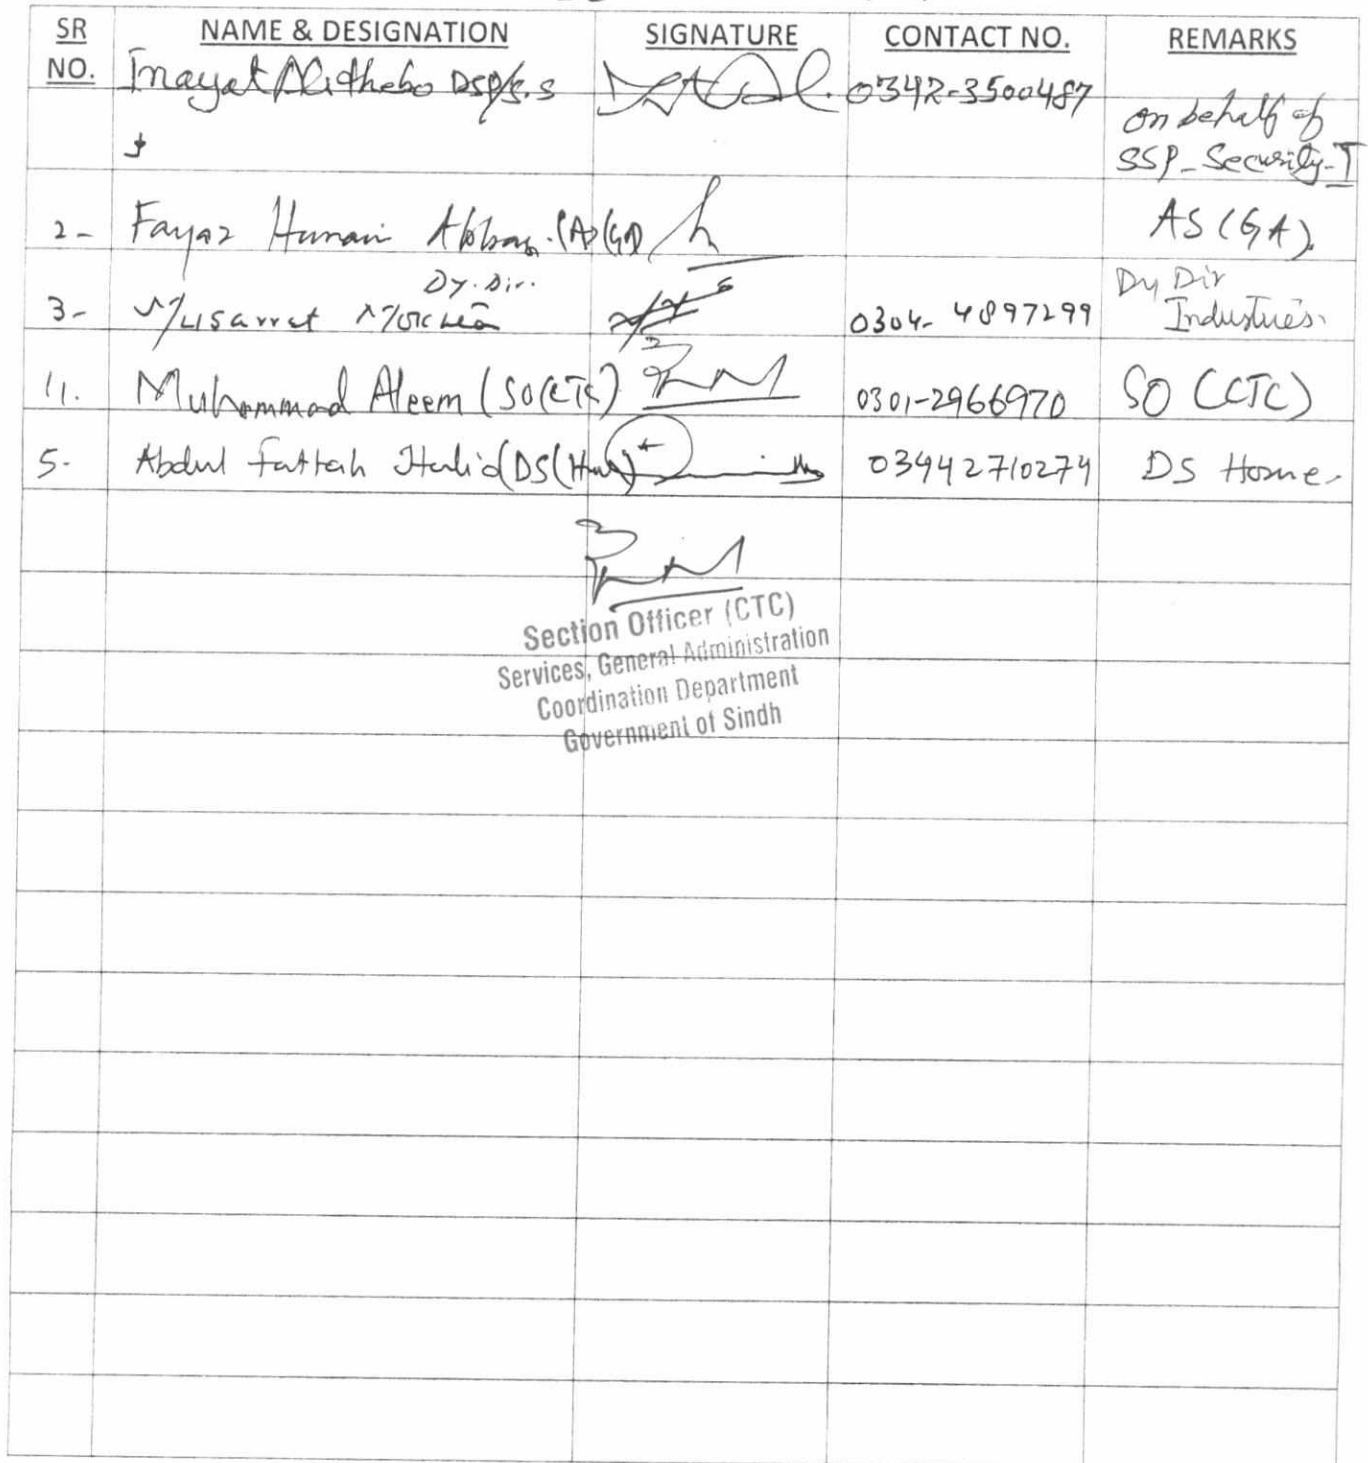 SR NO. NAME & DESIGNATION SIGNATURE CONTACT NO. REMARKS
Inayat Ali thebo DSP/S.S 0342-3500487
on behalf of
SSP-Security-I
2- Fayaz AS (GA).
Dy. Dir. Dy Dir
3- Musarrat 0304-4897299 Industries.
4. Muhammad Aleem (SO(CTC) 0301-2966970 SO (CTC)
5- Abdul Fattah (DS(Home) 03442710274 DS Home-
Section Officer (CTC)
Services, General Administration
Coordination Department
Government of Sindh